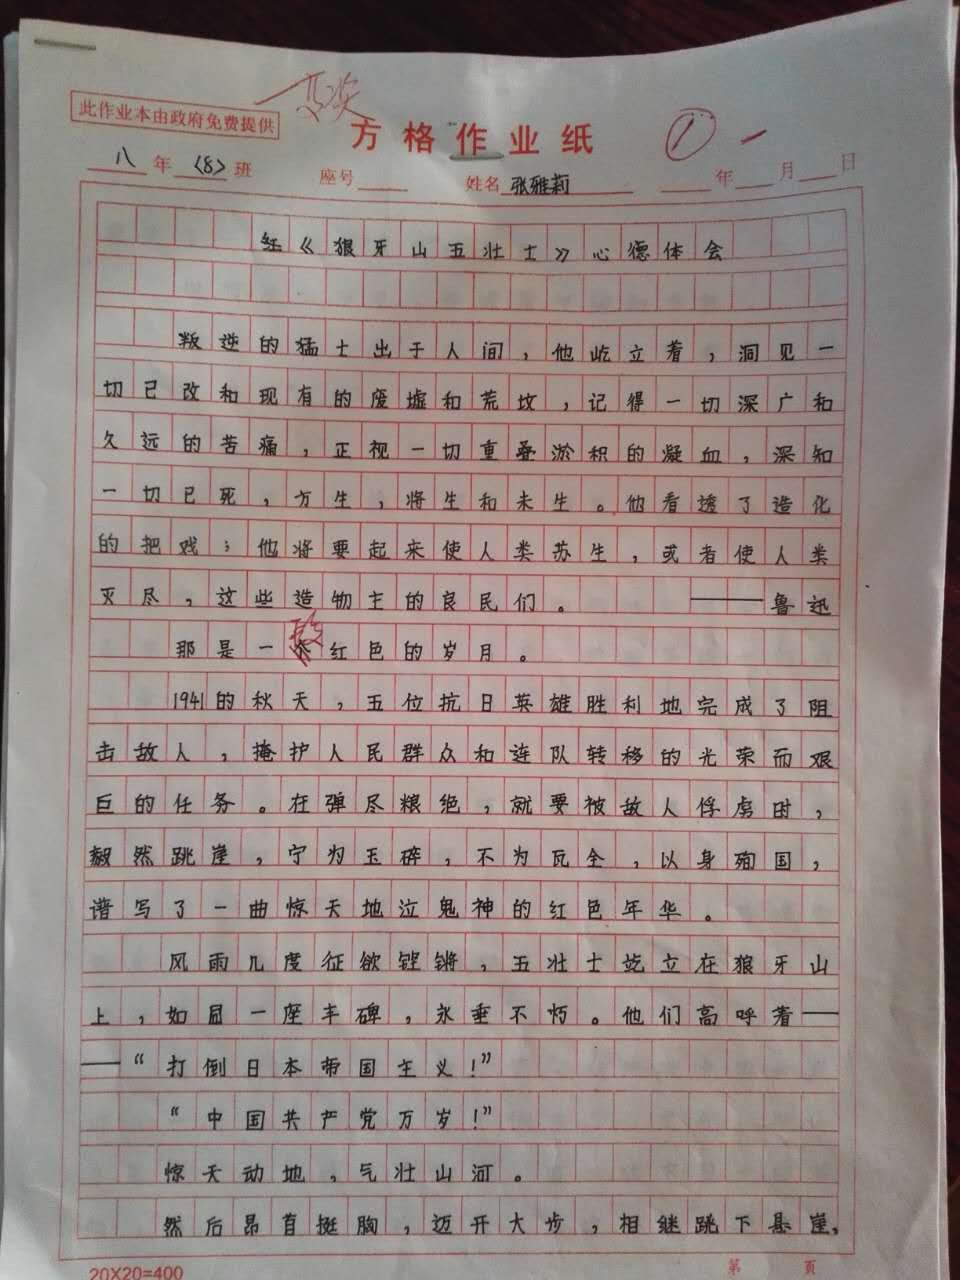 此作业本由政府免费提供
方格作业纸
八年〈8〉班 座号 姓名 张雅莉 年 月 日
红《狼牙山五壮士》心德体会
叛逆的猛士出于人间，他屹立着，洞见一
切已改和现有的废墟和荒坟，记得一切深广和
久远的苦痛，正视一切重叠淤积的凝血，深知
一切已死，方生，将生和未生。他看透了造化
的把戏；他将要起来使人类苏生，或者使人类
灭尽，这些造物主的良民们。 ——鲁迅
那是一段红色的岁月。
1941的秋天，五位抗日英雄胜利地完成了阻
击敌人，掩护人民群众和连队转移的光荣而艰
巨的任务。在弹尽粮绝，就要被敌人俘虏时，
毅然跳崖，宁为玉碎，不为瓦全，以身殉国，
谱写了一曲惊天地泣鬼神的红色年华。
风雨几度征欲铿锵，五壮士屹立在狼牙山
上，如同一座丰碑，永垂不朽。他们高呼着—
—“打倒日本帝国主义！”
“中国共产党万岁！”
惊天动地，气壮山河。
然后昂首挺胸，迈开大步，相继跳下悬崖，
20X20=400 第 页